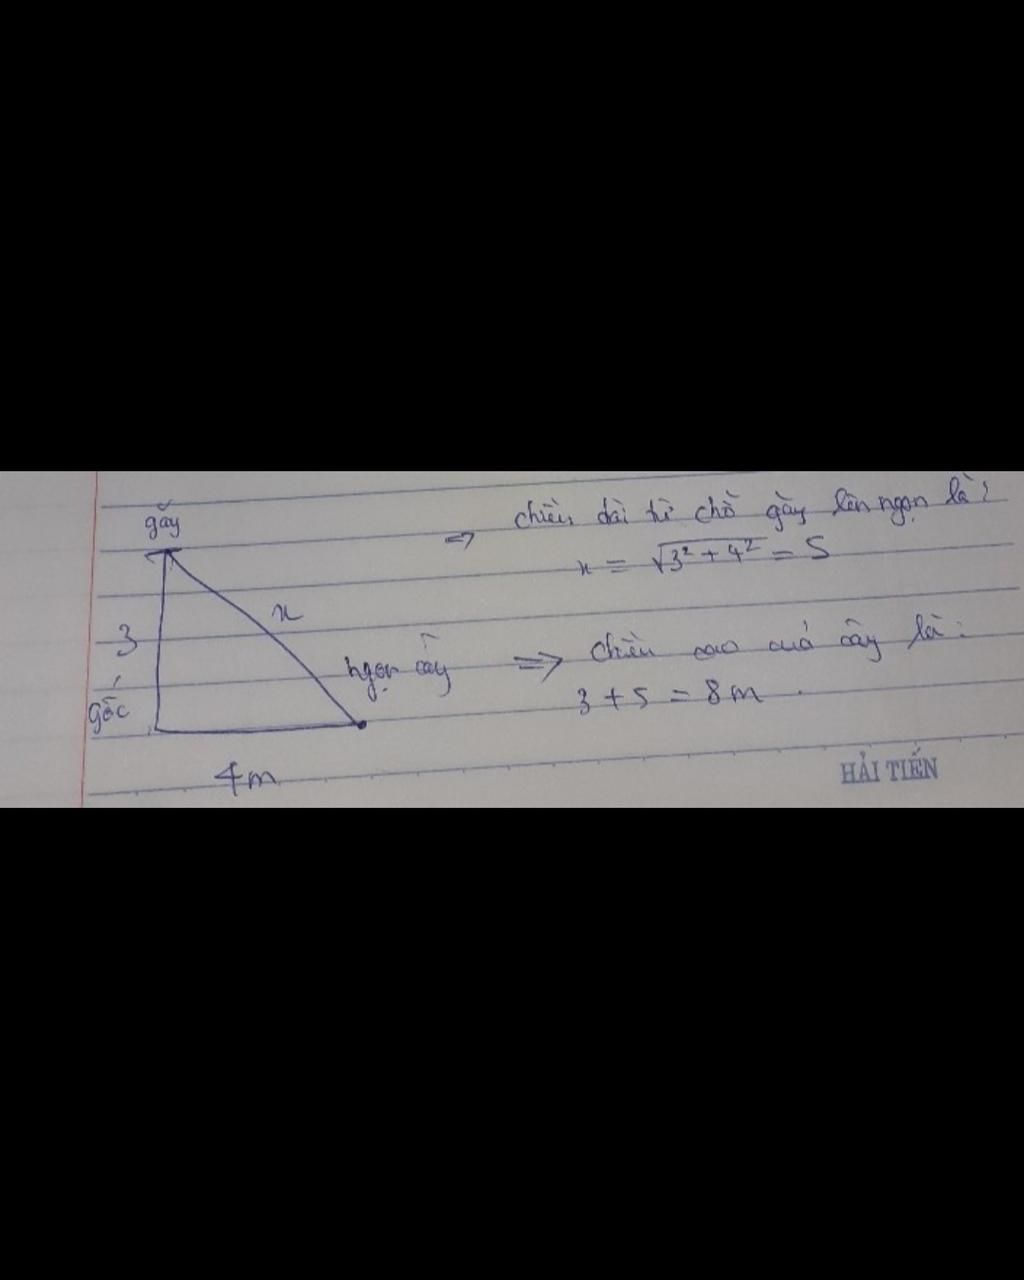 gãy
3
gốc
4m
x
ngọn cây
=> chiều dài từ chỗ gãy lên ngọn là:
x = √3² + 4² = 5
=> chiều cao của cây là:
3 + 5 = 8m.
HẢI TIẾN